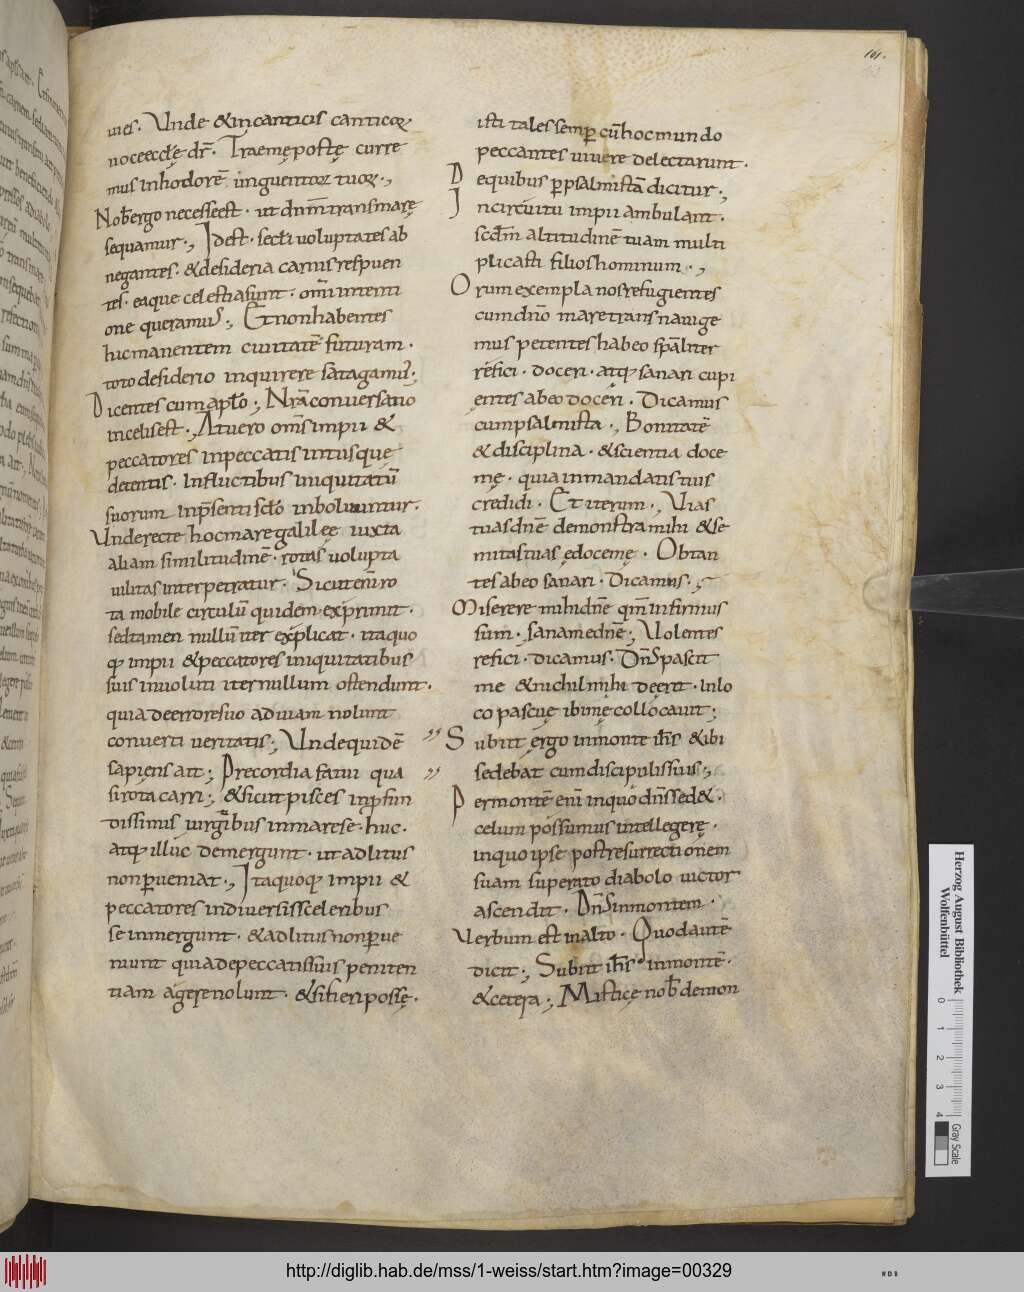 101.
uies. Unde & incanticis canticoꝝ
noce ecclę dr̄. Trae me postę curre
mus inhodorē unguentoꝝ tuoꝝ.,
Nob̄ ergo necesse est. ut dn̄m trans marę
sequamur., Idest. secl̄i uoluptates ab
negantes. & desideria carnis respuen
tes. eaque celestia sunt. om̄i intenti
one queramus., Et non habentes
hic manentem ciuitatē futuram.
toto desiderio inquirere satagamus;
Dicentes cum apło; Nr̄a conuersatio
incelis est., At uero om̄s impii &
peccatores inpeccatis intus que
detentis. Influctibus iniquitatū
suorum inp̄senti sclo inboluuntur.
Unde recte hoc mare galileę iuxta
aliam similitudinē. rotas uolupta
uilitas interpetratur. Sicut enī ro
ta mobile circulū quidem exprimit.
sed tamen nullū iter explicat. ita quo
qꝫ impii & peccatores iniquitatibus
suis inuoluti iter nullum ostendunt.
quia de errore suo ad uiam nolunt
conuerti ueritatis; Unde quidē
sapiens ait; Precordia fatui qua
si rota carri; & sicut pisces inp̄fun
dissimis uirgibus inmare se. huc.
atqꝫ illuc demergunt. ut ad litus
non ꝑueniat., Ita quoqꝫ impii &
peccatores indiuersis sceleribus
se inmergunt. & ad litus non ꝑue
niunt quia de peccatis suis peniten
tiam agere nolunt. & si fieri possę.
isti tales semꝑ cū hoc mundo
peccantes uiuere delectarunt.
De quibus ꝑ psalmistā dicitur;
In circuitu impii ambulant.
scdm̄ altitudinē tuam multi
plicasti filios hominum.,
Orum exempla nos refugientes
cum dn̄o mare trans nauige
mus petentes habeo spāliter
refici. doceri. atqꝫ sanari cupi
entes abeo doceri. Dicamus
cum psalmista., Bonitatē
& disciplina. & scientia doce
mę. quia inmandatis tuis
credidi. Et iterum., Uias
tuas dn̄e demonstra mihi & se
mitas tuas ędoce mę. Obtan
tes abeo sanari. Dicamus.
Miserere mihi dn̄e qm̄ infirmus
sum. sana me dn̄e; Uolentes
refici. dicamus. Dn̄s pascit
me & nichil mihi deerit. Inlo
co pascuę ibi mę collocauit;
Subiit ergo inmonte ih̄s & ibi
sedebat cum discipulis suis.,
Per montē enī inquo dn̄s sed&.
celum possumus intellegerę.
inquo ipse post resurrectionem
suam superato diabolo uictor
ascendit. Dn̄s inmontem.
Uerbum est inalto. Quod autē
dicit; Subiit ih̄s inmontē.
& cetera; Misticę nob̄ demon
Herzog August Bibliothek
Wolfenbüttel
0 1 2 3 4
Gray Scale
http://diglib.hab.de/mss/1-weiss/start.htm?image=00329